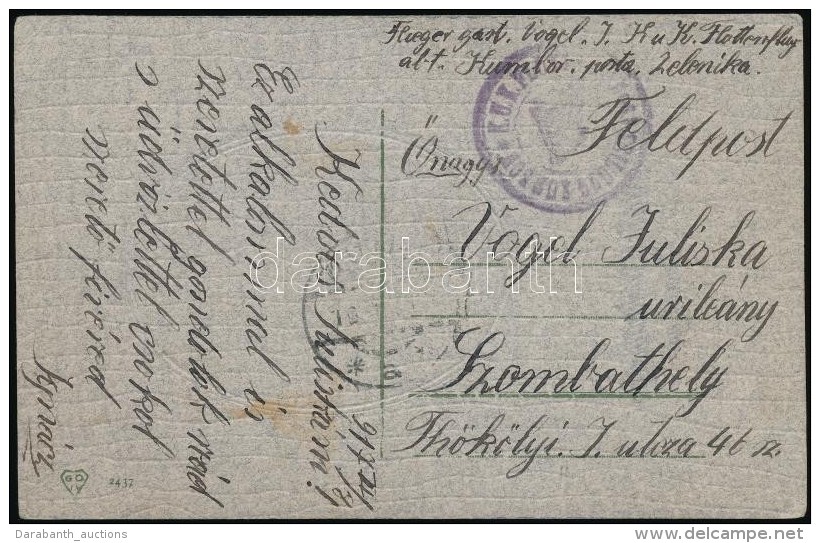 Flieger gast. Vogel. I. K u K. Flottenflug
abt. Kumbor. posta. Zelenika.
Feldpost
Őnagys
Vogel Juliska
urileány
Szombathely
Thököly. I. utcza 46 sz.
Kedves Juliskám!
Ez alkalommal is
szeretettel gondolok reád
s üdvözlettel csokol
szerető fivéred
Ignácz
2437
darabanth
Darabanth_auctions
delcampe.net